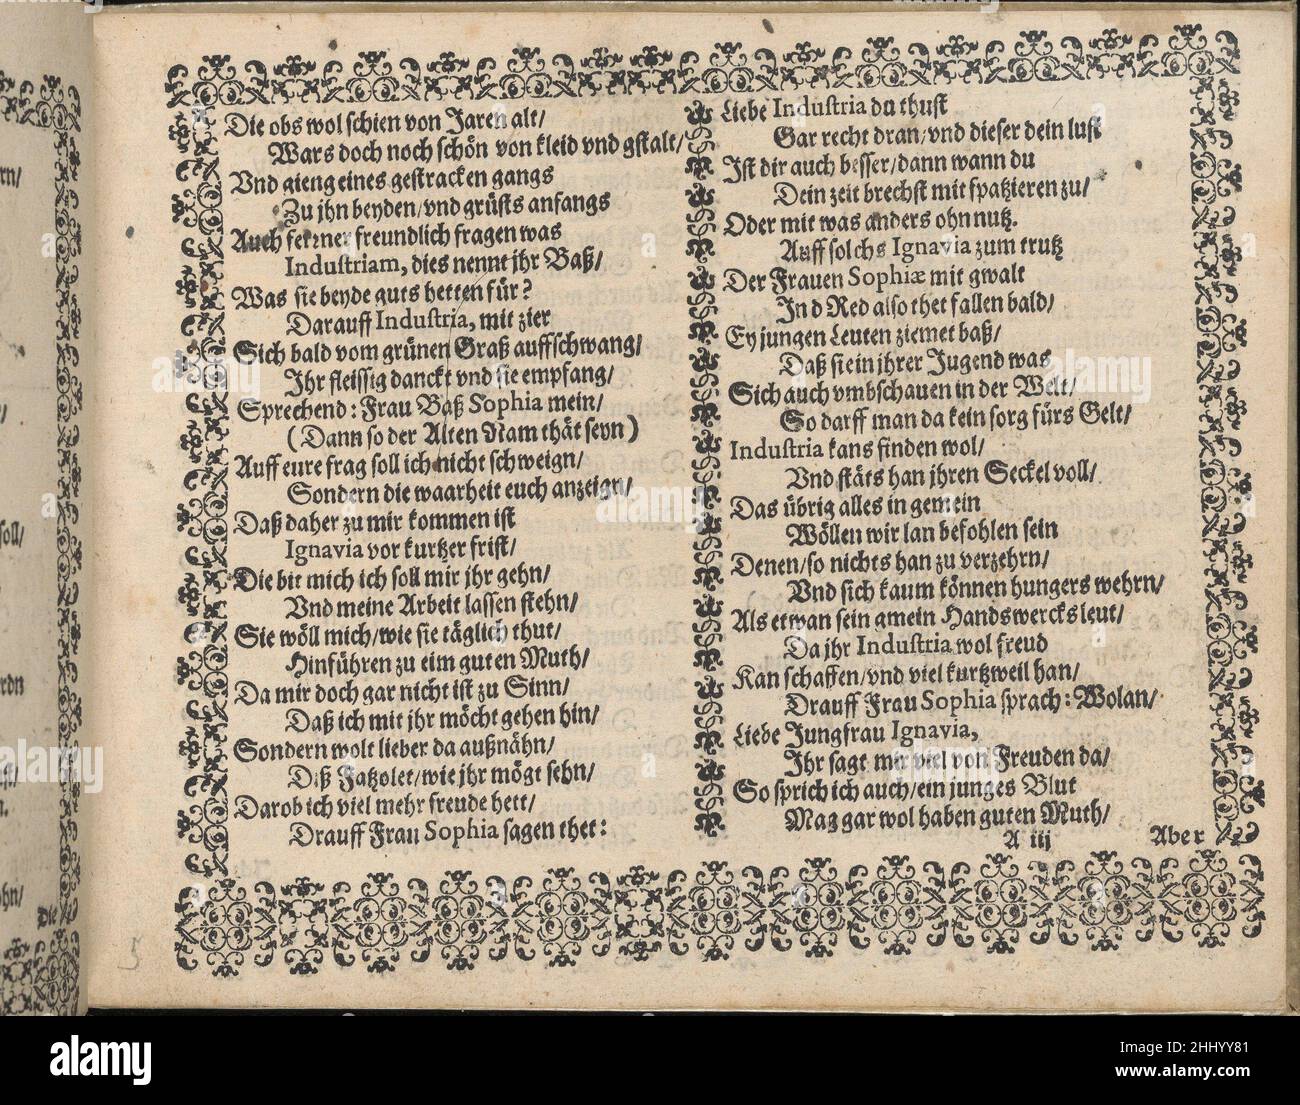 Die obs wol schien von Jaren alt/
Wars doch noch schön von kleid vnd gstalt/
Vnd gieng eines gestracken gangs
Zu jhn beyden/vnd grüsts anfangs
Auch ferrner freundlich fragen was
Industriam, dies nennt jhr Baß/
Was sie beyde guts hetten für?
Darauff Industria, mit zier
Sich bald vom grünen Graß auffschwang/
Jhr fleissig danckt vnd sie empfang/
Sprechend: Frau Baß Sophia mein/
(Dann so der Alten Nam thät seyn)
Auff eure frag soll ich nicht schweign/
Sondern die waarheit euch anzeign/
Daß daher zu mir kommen ist
Ignavia vor kurtzer frist/
Die bit mich ich soll mir jhr gehn/
Vnd meine Arbeit lassen stehn/
Sie wöll mich/wie sie täglich thut/
Hinführen zu eim guten Muth/
Da mir doch gar nicht ist zu Sinn/
Daß ich mit jhr möcht gehen hin/
Sondern wolt lieber da außnähn/
Diß Fatzolet/wie jhr mögt sehn/
Darob ich viel mehr freude hett/
Drauff Frau Sophia sagen thet:
Liebe Industria du thust
Gar recht dran/vnd dieser dein lust
Ist dir auch besser/dann wann du
Dein zeit brechst mit spatzieren zu/
Oder mit was anders ohn nutz.
Auff solchs Ignavia zum trutz
Der Frauen Sophiæ mit gwalt
In d Red also thet fallen bald/
Ey jungen Leuten ziemet baß/
Daß sie in jhrer Jugend was
Sich auch vmbschauen in der Welt/
So darff man da kein sorg fürs Gelt/
Industria kans finden wol/
Vnd stäts han jhren Seckel voll/
Das übrig alles in gemein
Wöllen wir lan befohlen sein
Denen/so nichts han zu verzehrn/
Vnd sich kaum können hungers wehrn/
Als etwan sein gmein Handswercksleut/
Da jhr Industria wol freud
Kan schaffen/vnd viel kurtzweil han/
Drauff Frau Sophia sprach: Wolan/
Liebe Jungfrau Ignavia,
Jhr sagt mir viel von Freuden da/
So sprich ich auch/ein junges Blut
Mag gar wol haben guten Muth/
A iij Aber
5
rn/
soll/
rdn
st/
hn/
Die
alamy
Image ID: 2HHYY81
www.alamy.com